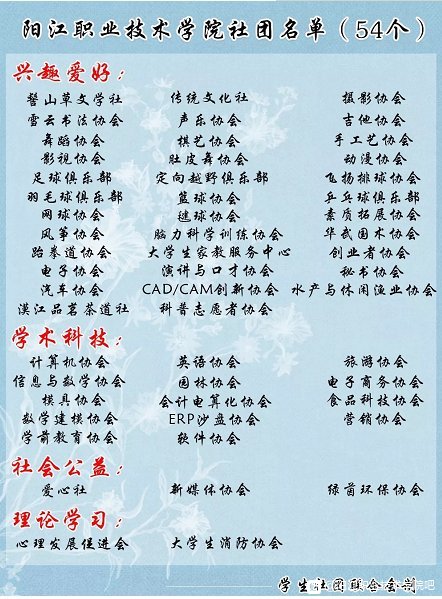 阳江职业技术学院社团名单（54个）
兴趣爱好：
髻山草文学社 传统文化社 摄影协会
雪云书法协会 声乐协会 吉他协会
舞蹈协会 棋艺协会 手工艺协会
影视协会 肚皮舞协会 动漫协会
足球俱乐部 定向越野俱乐部 飞扬排球协会
羽毛球俱乐部 篮球协会 乒乓球俱乐部
网球协会 毽球协会 素质拓展协会
风筝协会 脑力科学训练协会 华武国术协会
跆拳道协会 大学生家教服务中心 创业者协会
电子协会 演讲与口才协会 秘书协会
汽车协会 CAD/CAM创新协会 水产与休闲渔业协会
漠江品茗茶道社 科普志愿者协会
学术科技：
计算机协会 英语协会 旅游协会
信息与数学协会 园林协会 电子商务协会
模具协会 会计电算化协会 食品科技协会
数学建模协会 ERP沙盘协会 营销协会
学前教育协会 软件协会
社会公益：
爱心社 新媒体协会 绿茵环保协会
理论学习：
心理发展促进会 大学生消防协会
学生社团联合会制